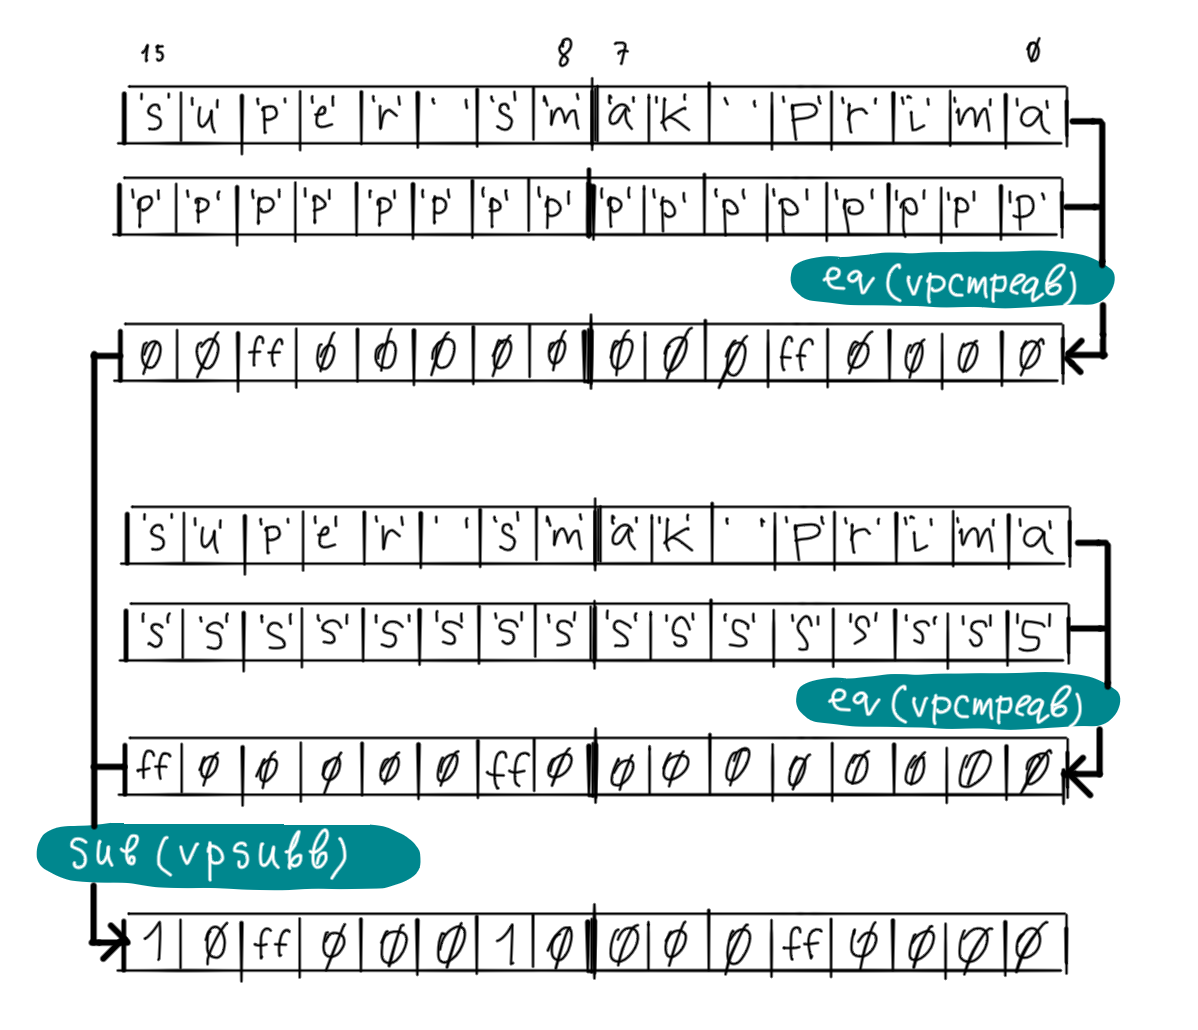 15 8 7 0
's' 'u' 'p' 'e' 'r' ' ' 's' 'm' 'a' 'k' ' ' 'p' 'r' 'i' 'm' 'a'
'p' 'p' 'p' 'p' 'p' 'p' 'p' 'p' 'p' 'p' 'p' 'p' 'p' 'p' 'p' 'p'
eq (vpcmpeqb)
0 0 ff 0 0 0 0 0 0 0 0 ff 0 0 0 0
's' 'u' 'p' 'e' 'r' ' ' 's' 'm' 'a' 'k' ' ' 'p' 'r' 'i' 'm' 'a'
's' 's' 's' 's' 's' 's' 's' 's' 's' 's' 's' 's' 's' 's' 's' 's'
eq (vpcmpeqb)
ff 0 0 0 0 0 ff 0 0 0 0 0 0 0 0 0
sub (vpsubb)
1 0 ff 0 0 0 1 0 0 0 0 ff 0 0 0 0